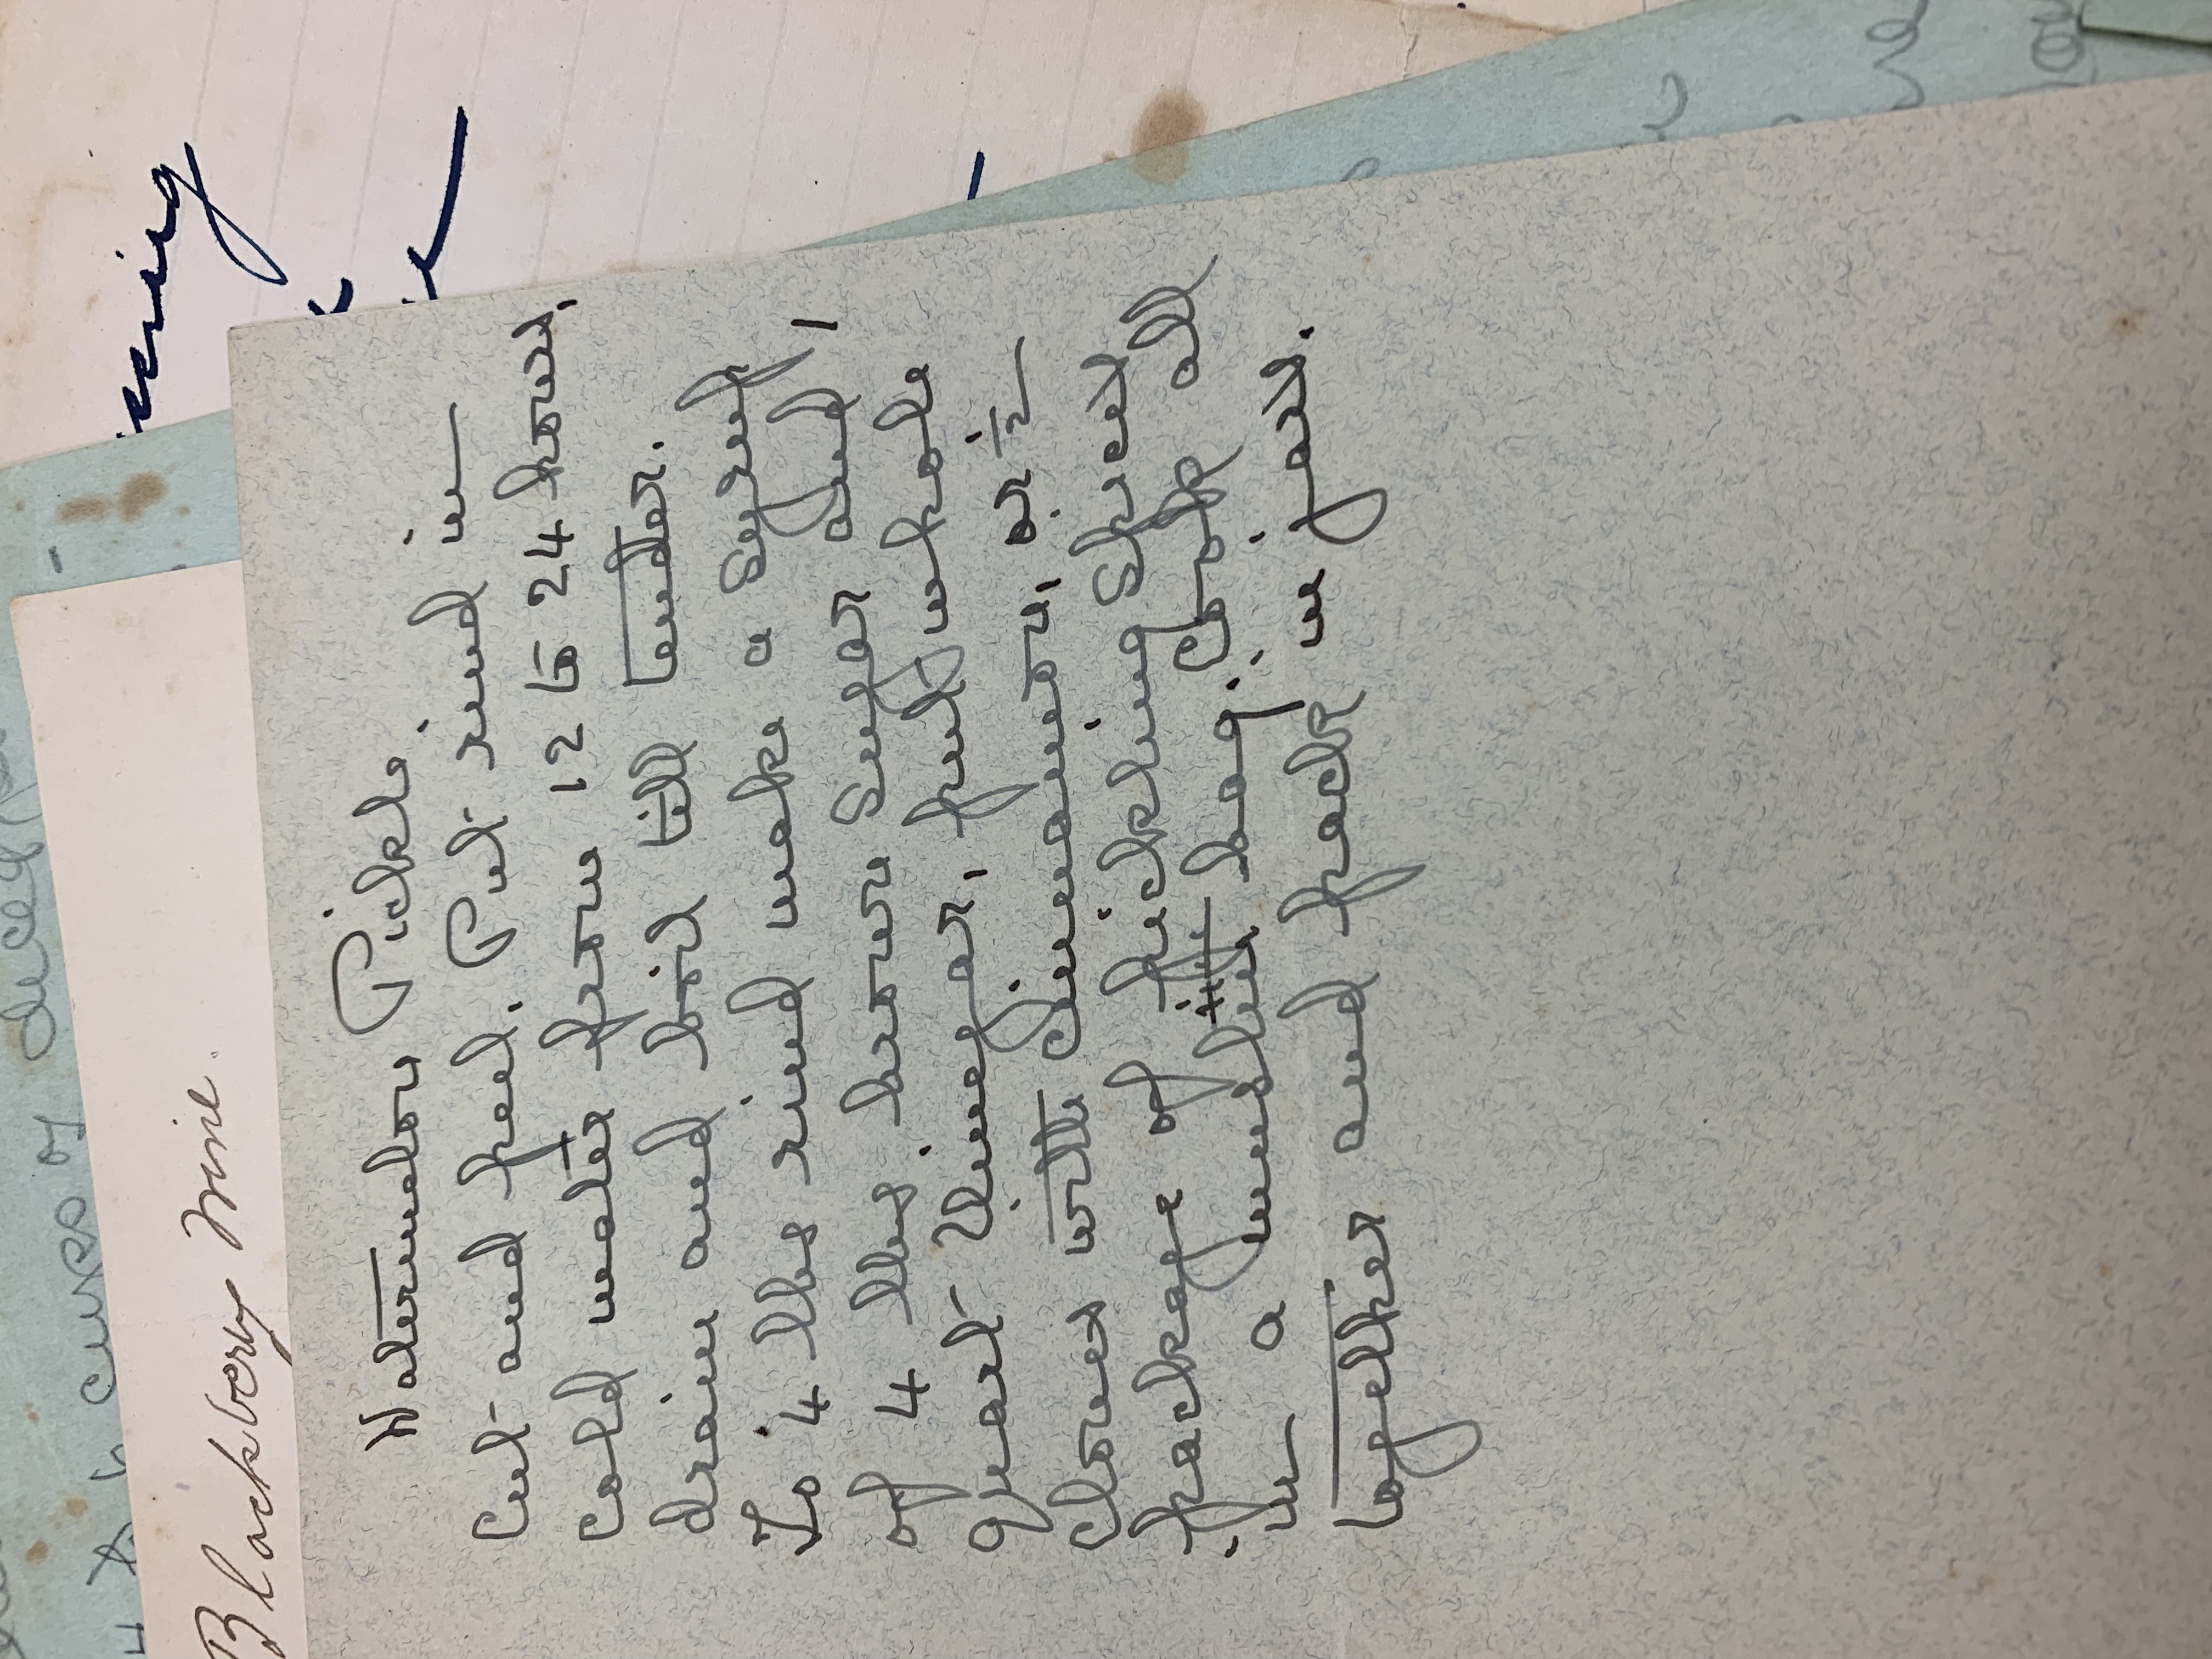 4 to 6 cups of
Blackberry Wine.
Watermelon Pickle.
Cut and peel. Put rind in
cold water from 12 to 24 hours,
drain and boil till tender.
To 4 lbs rind make a syrup
of 4 lbs. brown sugar and 1
quart Vinegar, put whole
cloves with cinnamon, or 1/2
package of pickling spices
in a muslin bag. Cook all
together and pack in jars.